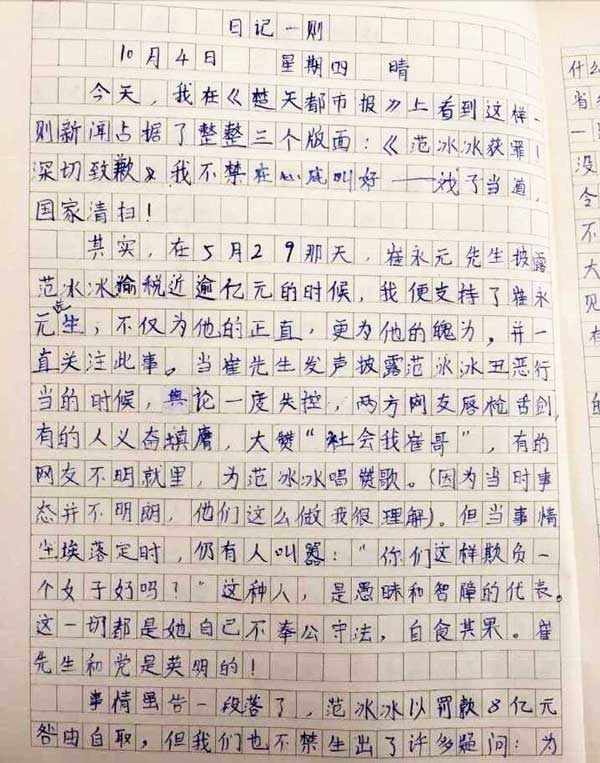 日记一则
10月4日 星期四 晴
今天，我在《楚天都市报》上看到这样一
则新闻占据了整整三个版面：《范冰冰获罪！
深切致歉》我不禁在心底叫好——戏子当道，
国家清扫！
其实，在5月29那天，崔永元先生披露
范冰冰偷税近逾亿元的时候，我便支持了崔永
元先生，不仅为他的正直，更为他的魄力，并一
直关注此事。当崔先生发声披露范冰冰丑恶行
当的时候，舆论一度失控，两方网友唇枪舌剑，
有的人义奋填膺，大赞“社会我崔哥”，有的
网友不明就里，为范冰冰唱赞歌。（因为当时事
态并不明朗，他们这么做我很理解）。但当事情
尘埃落定时，仍有人叫嚣：“你们这样欺负一
个女子好吗？”这种人，是愚昧和智障的代表。
这一切都是她自己不奉公守法，自食其果。崔
先生和党是英明的！
事情虽告一段落了，范冰冰以罚款8亿元
咎由自取，但我们也不禁生出了许多疑问：为
什么
省
一
没
今
不
大
见
有
的